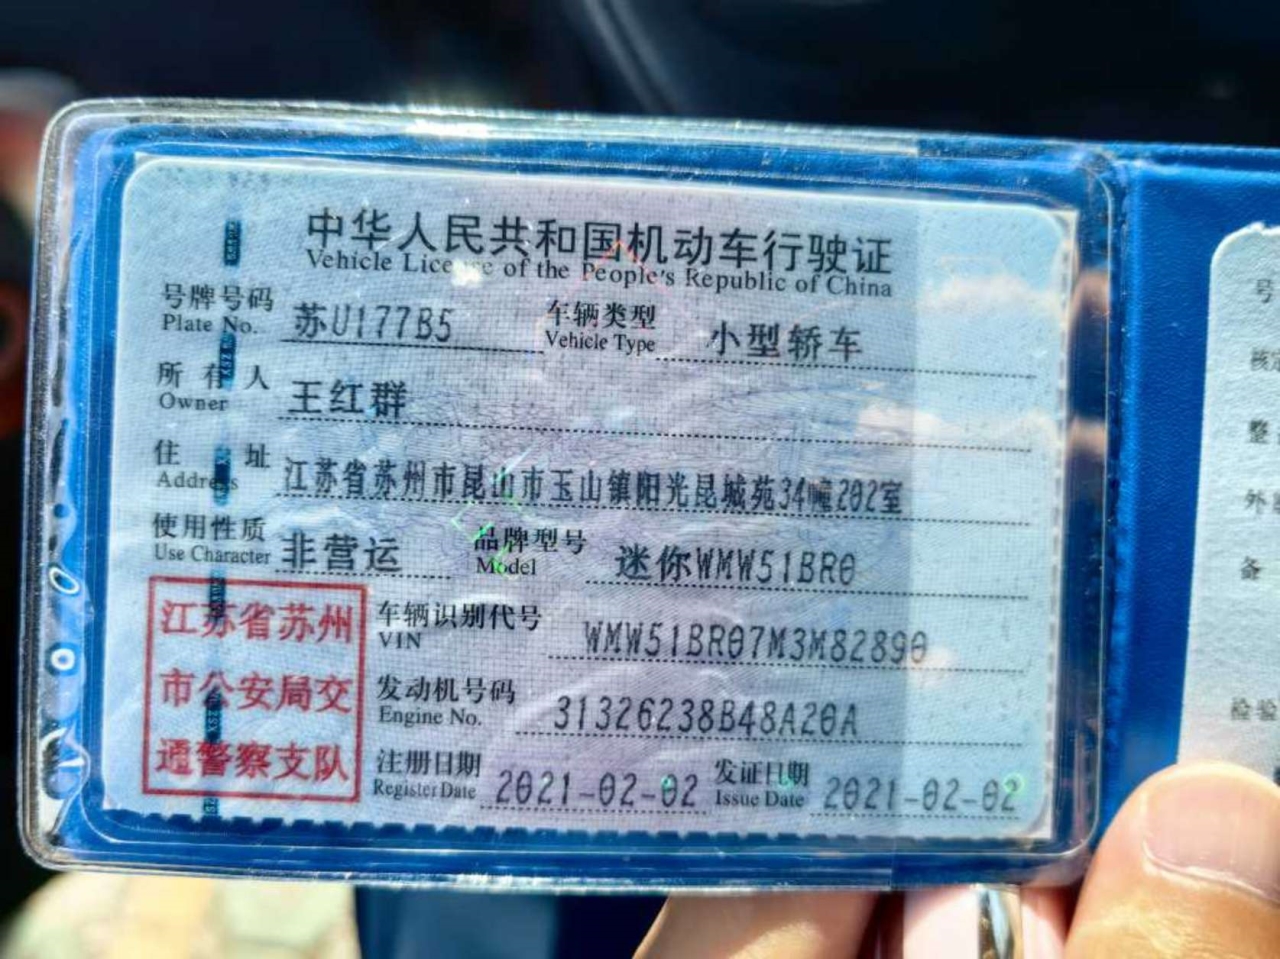 中华人民共和国机动车行驶证
Vehicle License of the People's Republic of China
号牌号码 苏U177B5 车辆类型 小型轿车
Plate No. Vehicle Type
所有人 王红群
Owner
住址 江苏省苏州市昆山市玉山镇阳光昆城苑34幢202室
Address
使用性质 非营运 品牌型号 迷你WMW51BR0
Use Character Model
江苏省苏州
市公安局交
通警察支队
车辆识别代号 WMW51BR07M3M82890
VIN
发动机号码 31326238B48A20A
Engine No.
注册日期 2021-02-02 发证日期 2021-02-02
Register Date Issue Date
号
核定
整
外
备
检验